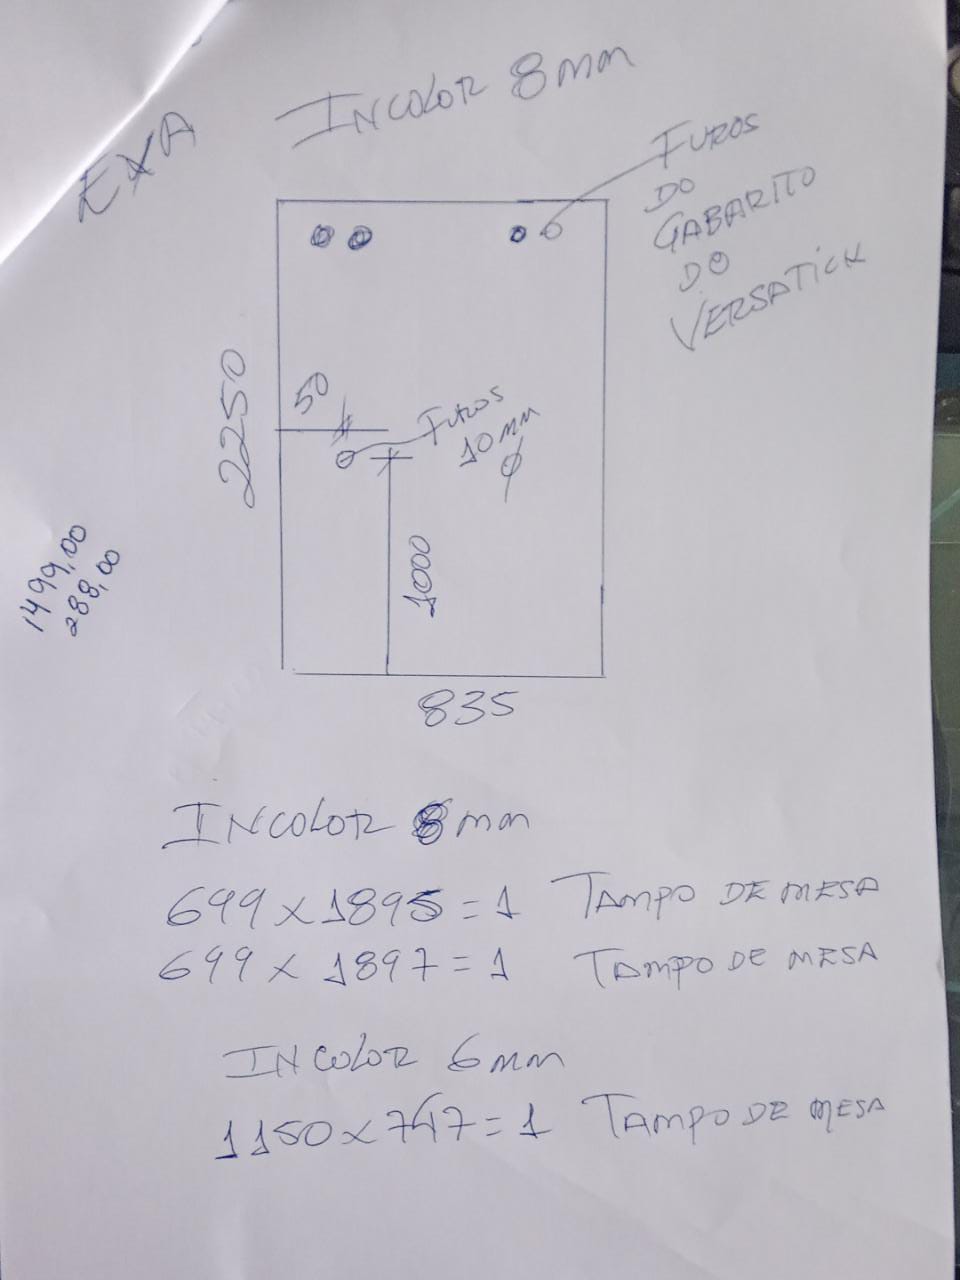 EXA
INCOLOR 8mm
FUROS
DO
GABARITO
DO
VERSATICK
2250
50
FUROS
10mm
φ
1000
1499,00
288,00
835
INCOLOR 8mm
699 x 1895 = 1 TAMPO DE MESA
699 x 1897 = 1 TAMPO DE MESA
INCOLOR 6mm
1150 x 747 = 1 TAMPO DE MESA